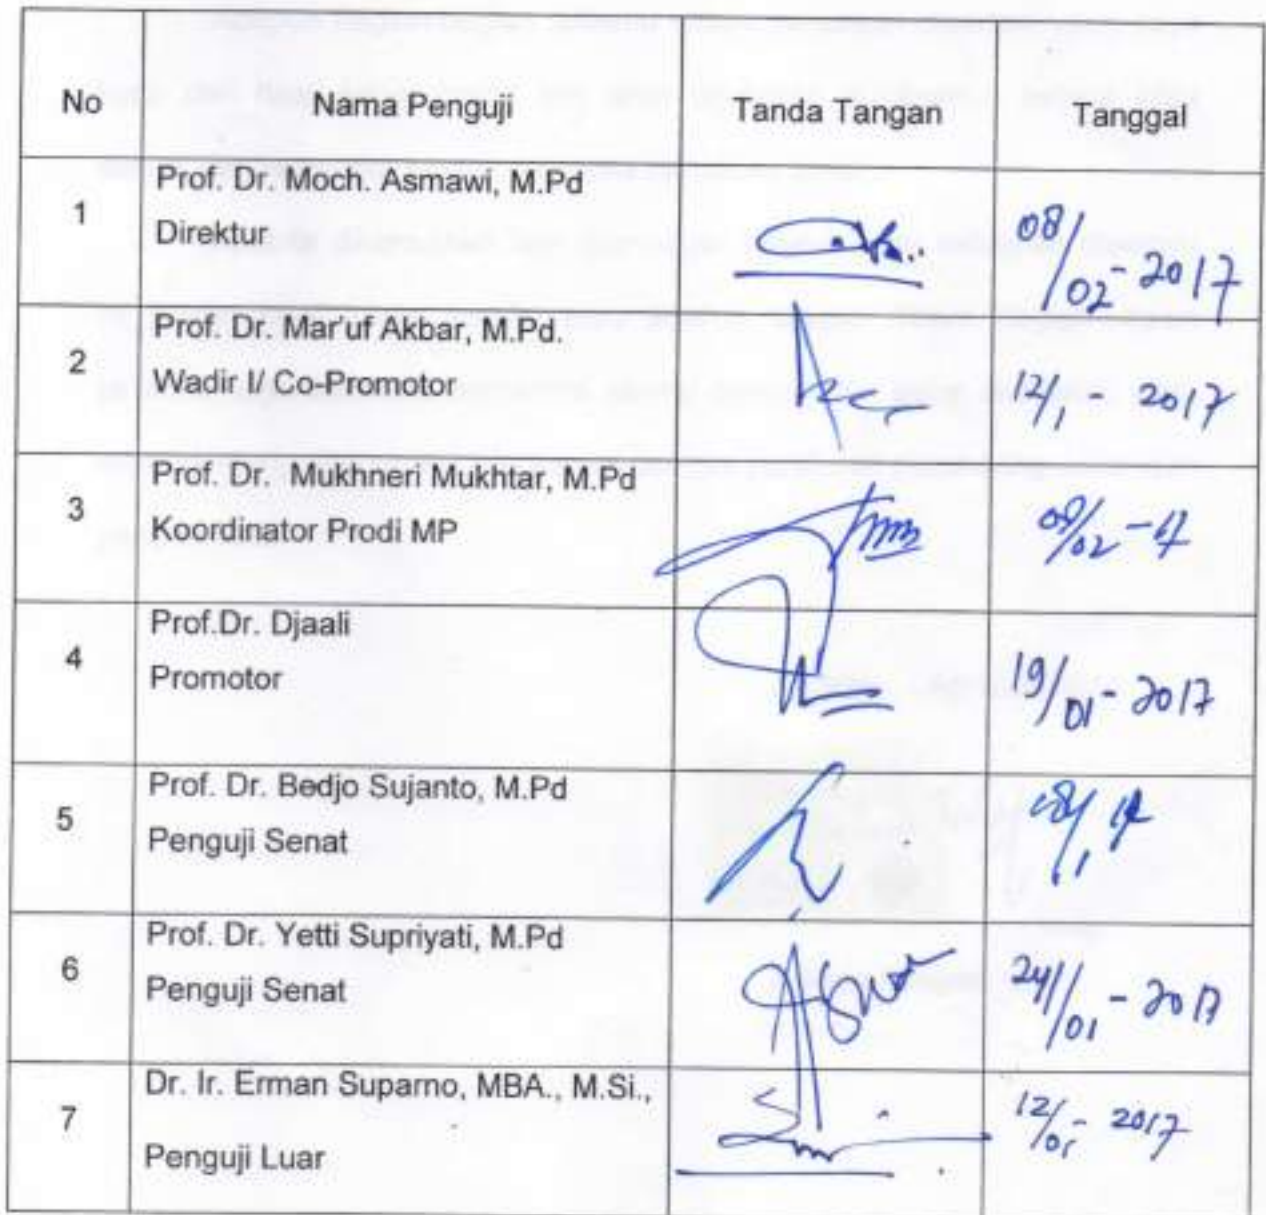 No Nama Penguji Tanda Tangan Tanggal
1 Prof. Dr. Moch. Asmawi, M.Pd
Direktur 08/02-2017
2 Prof. Dr. Mar'uf Akbar, M.Pd.
Wadir I/ Co-Promotor 12/1 - 2017
3 Prof. Dr. Mukhneri Mukhtar, M.Pd
Koordinator Prodi MP
4 Prof.Dr. Djaali
Promotor 19/01-2017
5 Prof. Dr. Bedjo Sujanto, M.Pd
Penguji Senat
6 Prof. Dr. Yetti Supriyati, M.Pd
Penguji Senat 24/01 - 2017
7 Dr. Ir. Erman Suparno, MBA., M.Si.,
Penguji Luar 12/01- 2017